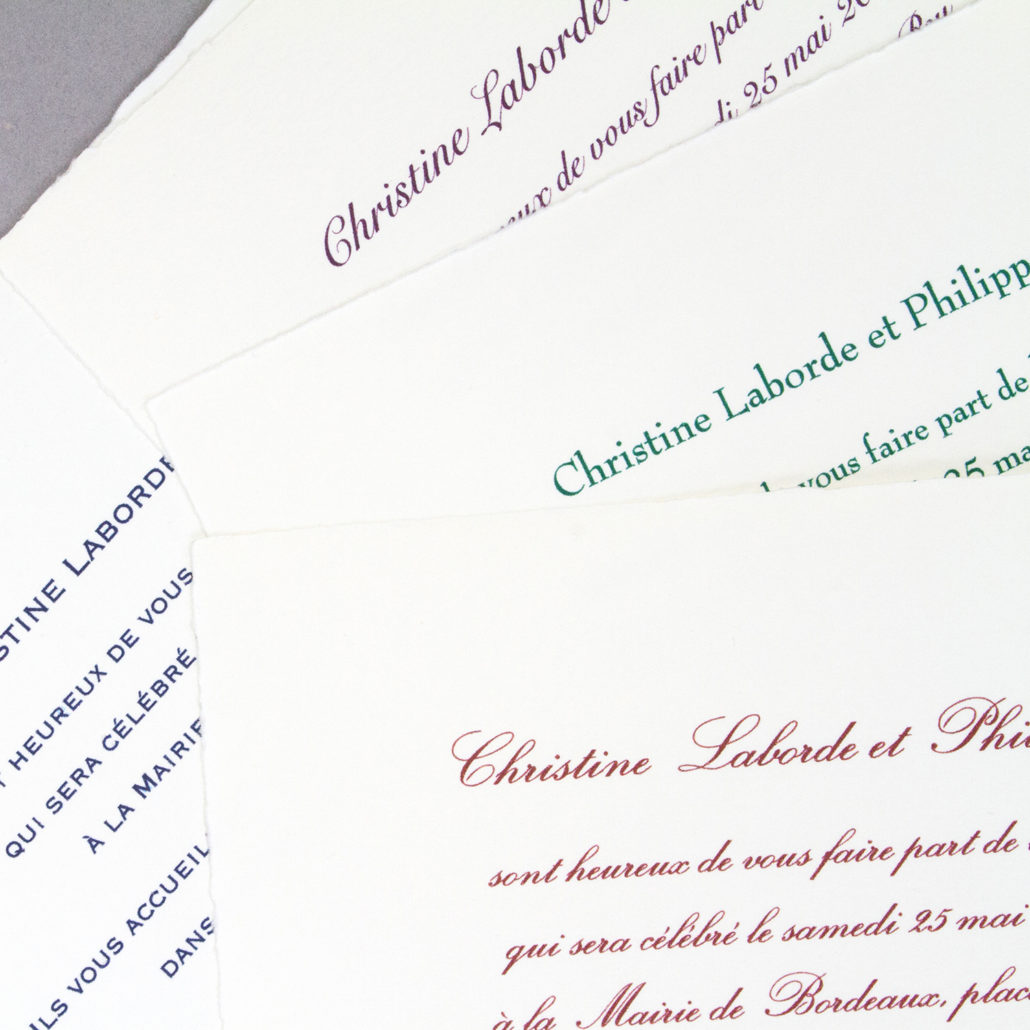 Christine Laborde
de vous faire part
25 mai
Christine Laborde et
vous faire part de
25
LABORDE
HEUREUX DE VOUS
QUI SERA CÉLÉBRÉ
À LA MAIRIE
VOUS ACCUEIL
DANS
Christine Laborde et
sont heureux de vous faire part de
qui sera célébré le samedi 25 mai
à la Mairie de Bordeaux, place